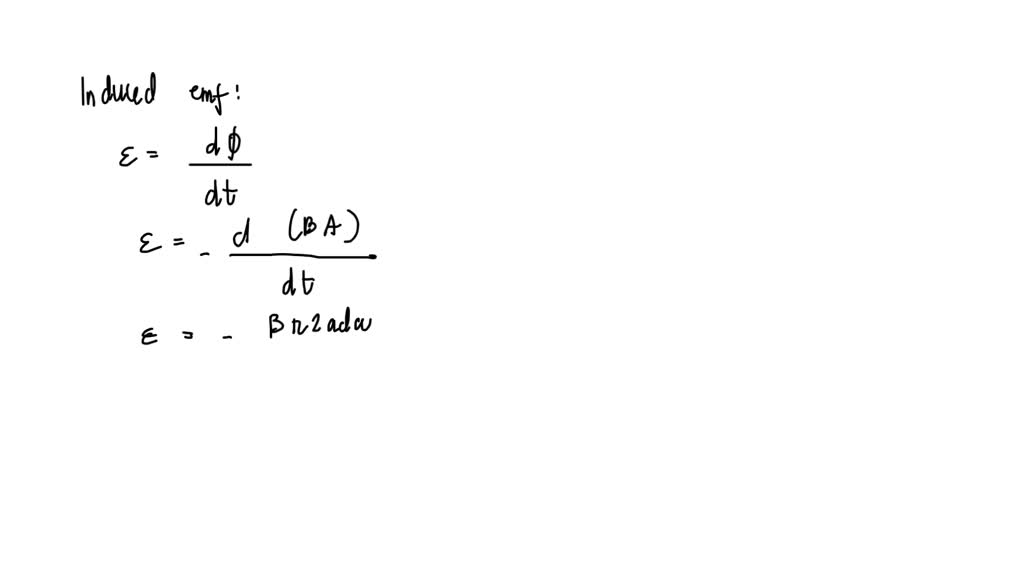 Induced emf:
ε = dΦ/dt
ε = - d (BA)/dt
ε = - B π 2 a da